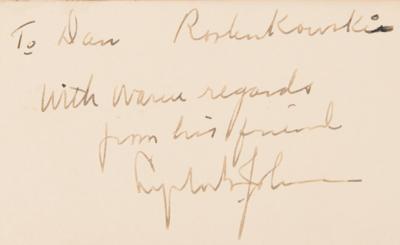 To Dan Rostenkowski
with warm regards
from his friend
Lyndon B. Johnson